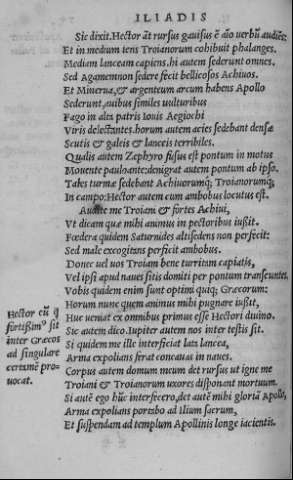 ILIADIS
Sic dixit. Hector āt rursus gauisus ē āīo verbū audiēs:
Et in medium iens Troianorum cohibuit phalanges.
Mediam lanceam capiens. hi autem sederunt omnes.
Sed Agamemnon sedere fecit bellicosos Achiuos.
Et Minerua, & argenteum arcum habens Apollo
Sederunt, auibus similes vulturibus
Fago in alta patris Iouis Aegiochi
Viris delectantes. horum autem acies sedebant densæ
Scutis & galeis & lanceis terribiles.
Qualis autem Zephyro fusus est pontum in motus
Mouente paulo ante: denigrat autem pontum ab ipso.
Tales turmæ sedebant Achiuorumq; Troianorumq;
In campo: Hector autem cum ambobus locutus est.
Audite me Troiani & fortes Achiui,
Vt dicam quæ mihi animus in pectoribus iussit.
Fœdera quidem Saturnides altisedens non perfecit:
Sed male excogitans perficit ambobus.
Donec vel uos Troiam bene turritam capiatis,
Vel ipsi apud naues sitis domiti per pontum transeuntes.
Vobis quidem enim sunt optimi quiq; Græcorum:
Horum nunc quem animus mihi pugnare iussit,
Huc veniat ex omnibus primus esse Hectori diuino.
Sic autem dico. Iupiter autem nos inter testis sit.
Si quidem me ille interficiat lata lancea,
Arma expolians ferat concauas in naues.
Corpus autem domum meum det rursus ut igne me
Troiani & Troianorum uxores disponant mortuum.
Si autē ego hūc interfecero, det autē mihi gloriā Apollo,
Arma expolians portabo ad Ilium sacrum,
Et suspendam ad templum Apollinis longe iacientis.
Hector cū q̄
fortissimo sit
inter Græcos
ad singulare
certamē pro-
uocat.